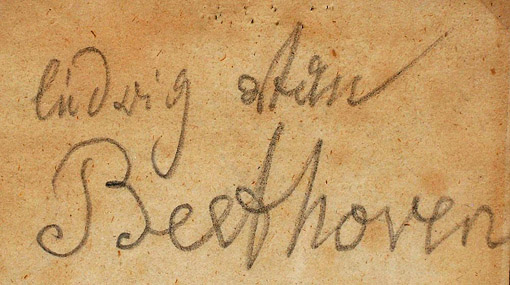 ludwig van
Beethoven